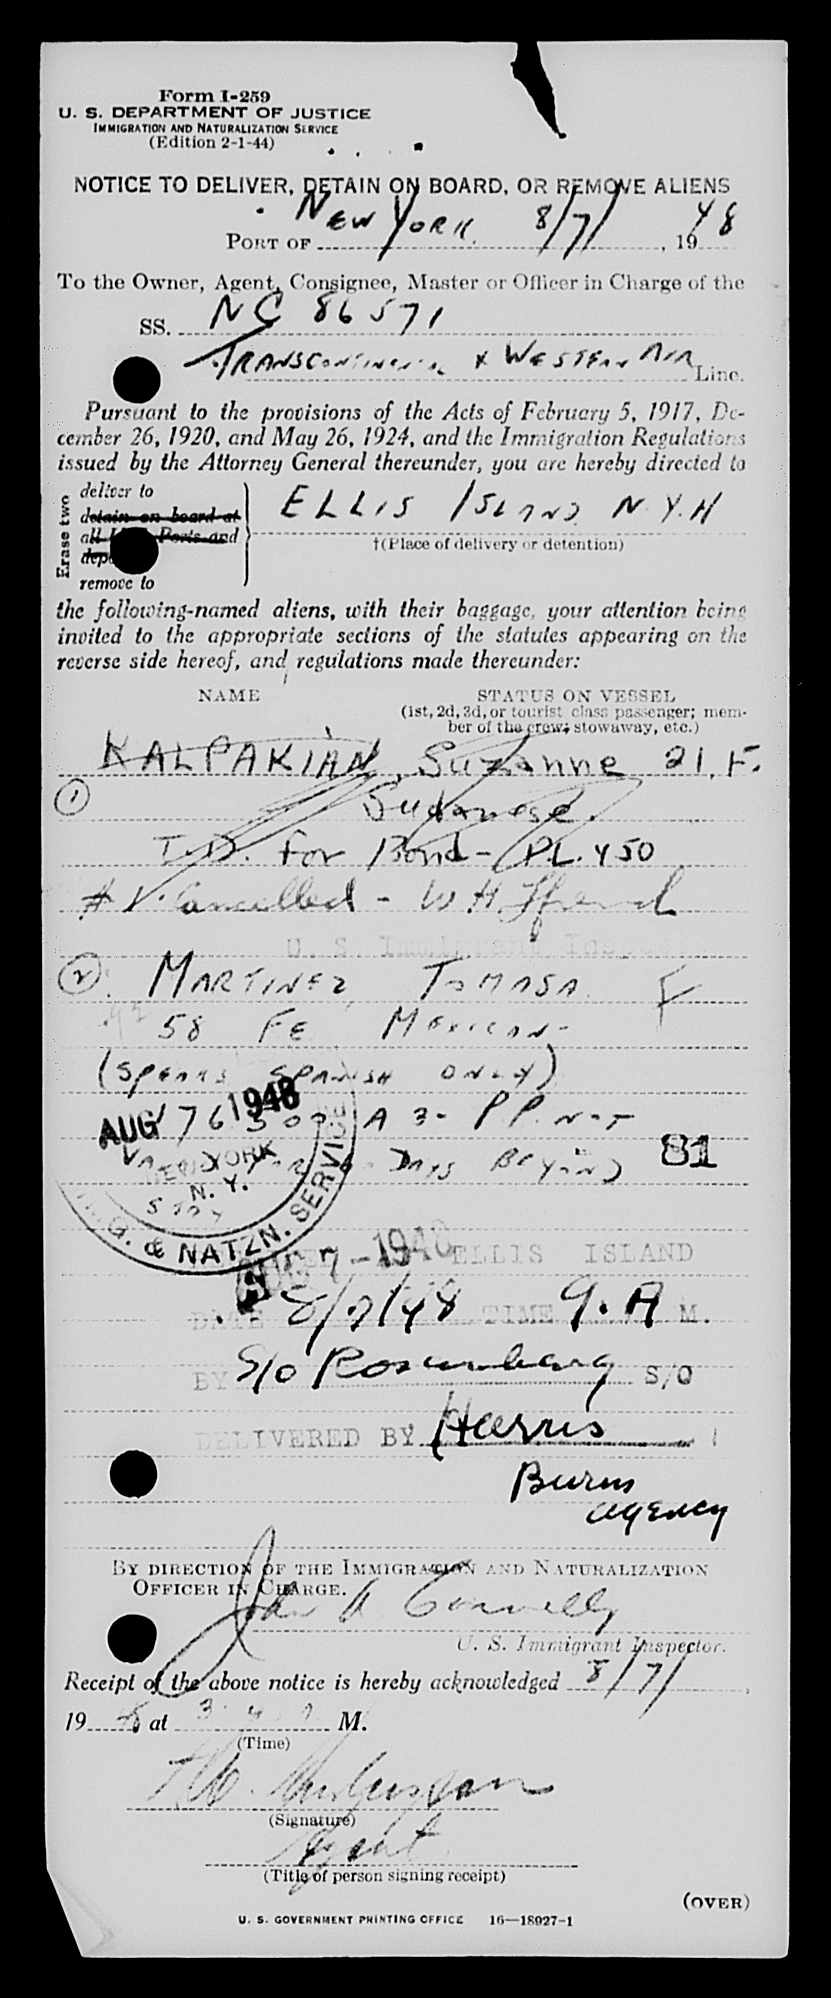 Form I-259
U. S. DEPARTMENT OF JUSTICE
IMMIGRATION AND NATURALIZATION SERVICE
(Edition 2-1-44)
NOTICE TO DELIVER, DETAIN ON BOARD, OR REMOVE ALIENS
PORT OF New York 8/7/, 1948
To the Owner, Agent, Consignee, Master or Officer in Charge of the
SS. NC 86571
Transcontinental & Western Air Line.
Pursuant to the provisions of the Acts of February 5, 1917, De-
cember 26, 1920, and May 26, 1924, and the Immigration Regulations
issued by the Attorney General thereunder, you are hereby directed to
Erase two
deliver to
detain on board at
all U.S. Ports and
remove to
ELLIS ISLAND N.Y.H
†(Place of delivery or detention)
the following-named aliens, with their baggage, your attention being
invited to the appropriate sections of the statutes appearing on the
reverse side hereof, and regulations made thereunder:
NAME STATUS ON VESSEL
(1st, 2d, 3d, or tourist class passenger; mem-
ber of the crew; stowaway, etc.)
KALPAKIAN, Suzanne 21. F.
① Sudanese.
T.D. for Bond - P.L. 450
# 1. Cancelled - W H
U. S. Immigrant Inspector
② MARTINEZ TOMASA F
58 FE MEXICAN-
(SPEAKS SPANISH ONLY)
AUG 7 1948
A 3- PP. NOT
60 DAYS BEYOND 81
NEW YORK
N. Y.
STAY
& NATZN. SERVICE
AUG 7-1948 ELLIS ISLAND
DATE 8/7/48 TIME 9. A M.
BY S/O Rosenberg S/O
DELIVERED BY Harris
Burns
agency
BY DIRECTION OF THE IMMIGRATION AND NATURALIZATION
OFFICER IN CHARGE.
John A Connelly
U. S. Immigrant Inspector.
Receipt of the above notice is hereby acknowledged 8/7/,
1948 at M.
(Time)
(Signature)
Agent
(Title of person signing receipt)
(OVER)
U. S. GOVERNMENT PRINTING OFFICE 16—18927-1